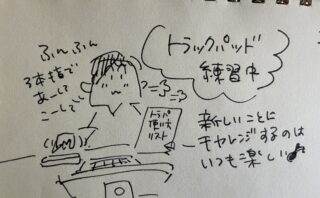 ふんふん
3本指で
あーして
こーして
トラックパッド
練習中
トラパ
使い方
リスト
新しいことに
チャレンジするのは
いつも楽しい♪